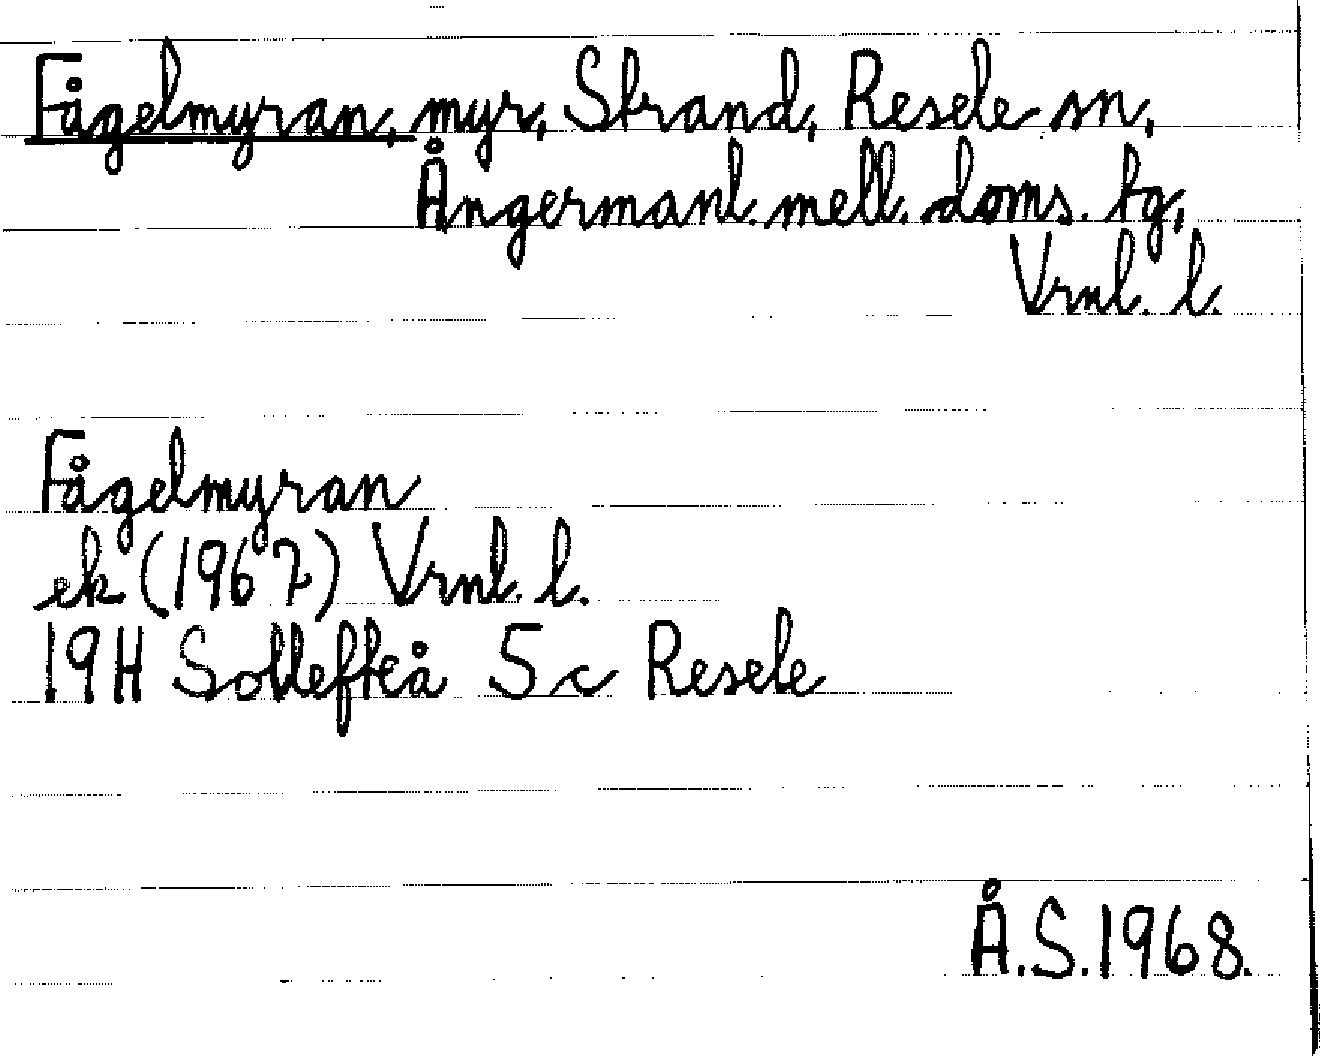 Fågelmyran, myr, Strand, Resele sn,
Ångermanl. mell. doms. tg,
Vrnl. l.
Fågelmyran
ek (1967) Vrnl. l.
19H Sollefteå 5 c Resele
Å.S. 1968.